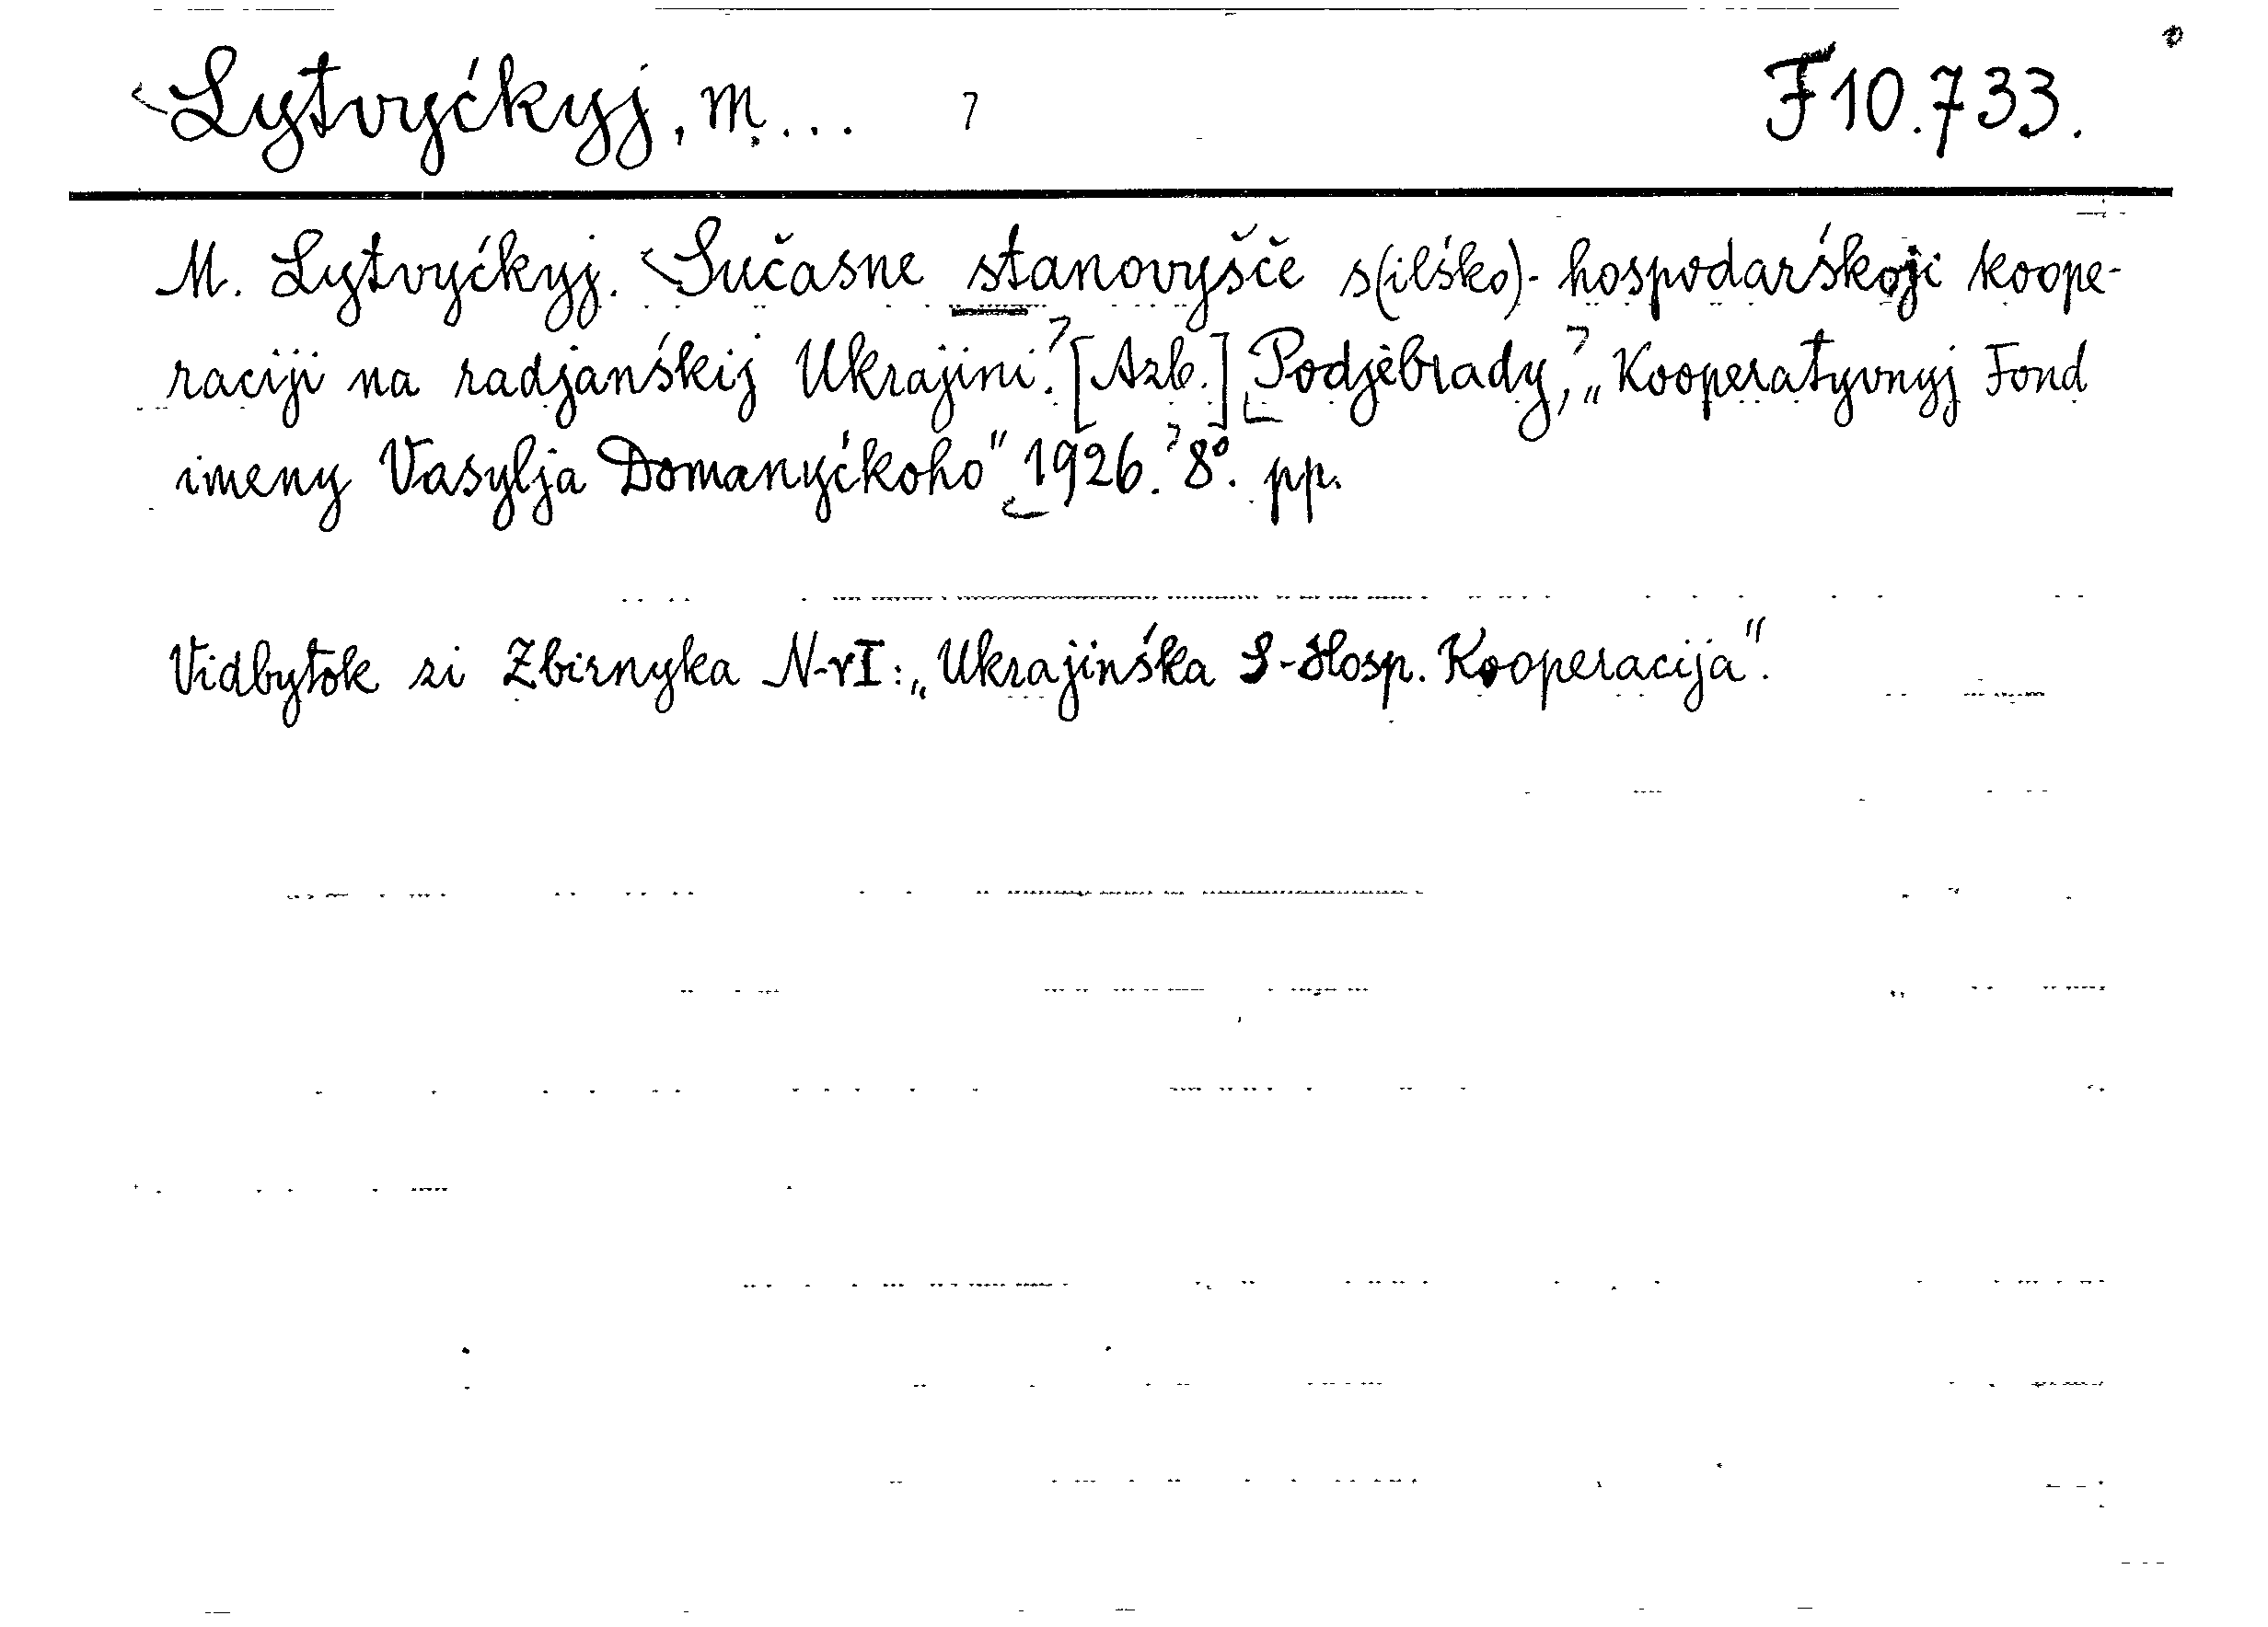 Lytvyćkyj, M... F 10.733.
M. Lytvyćkyj. Sučasne stanovyšče s(ilśko)-hospodarśkoji koope-
raciji na radjanśkij Ukrajini. [Azb.] Podjèbrady, „Kooperatyvnyj Fond
imeny Vasylja Domanyćkoho" 1926. 8°. pp.
Vidbytok zi Zbirnyka N-r I: „Ukrajinśka S-Hosp. Kooperacija".